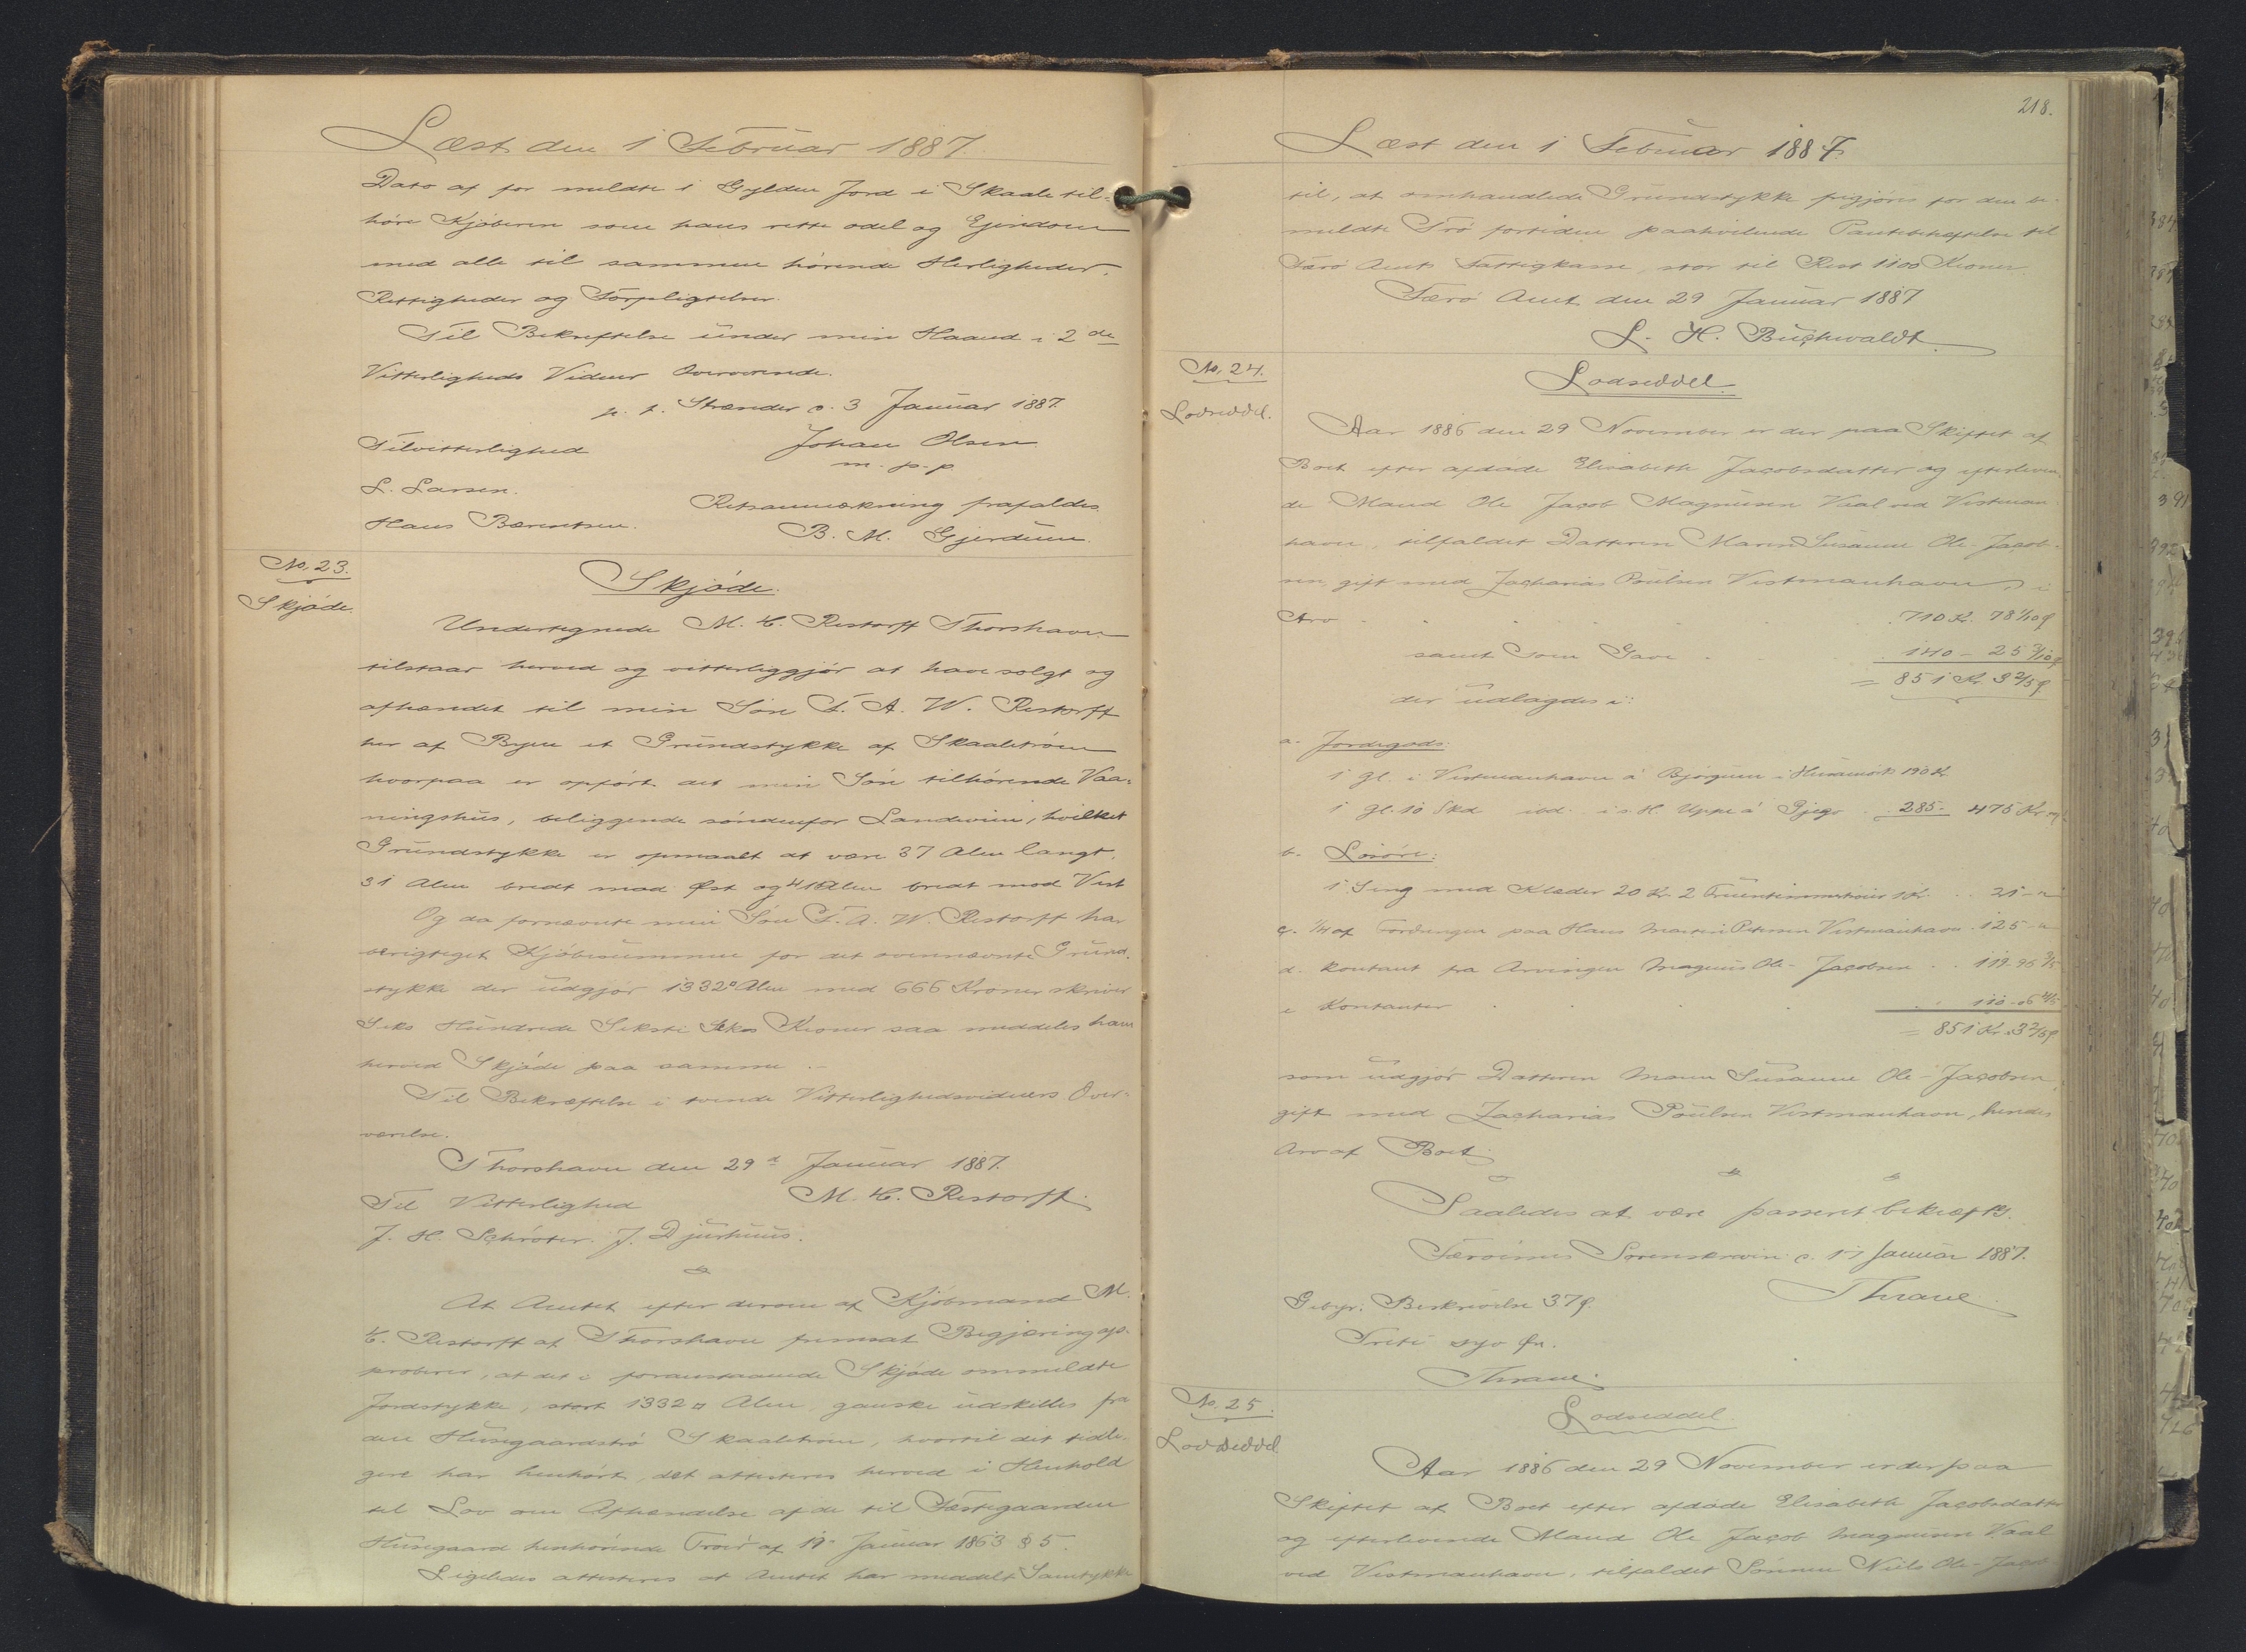 Læst den 1 Februar 1887.
Dato af for meldte 1 Gylden Jord i Skaale til-
høre Kjøberen som hans rette odel og Ejendom
med alle til sammen hørende Herligheder,
Rettigheder og Forpligtelser.
Til Bekræftelse under min Haand i 2de
Vitterligheds Vidners Overværende.
p. t. Strænder d. 3 Januar 1887.
Tilvitterlighed Johan Olsen
m. p. p
L. Larsen.
Hans Bærentsen. Retsanmærkning frafaldes
B. M. Gjerdum.
No. 23.
Skjøde.
Skjøde.
Undertegnede M. C. Restorff Thorshavn
tilstaar herved og vitterliggjør at have solgt og
afhændet til min Søn F. A. W. Restorff
her af Byen et Grundstykke af Skaaletrøen
hvorpaa er opført det min Søn tilhørende Vaa-
ningshus, beliggende søndenfor Landevein, hvilket
Grundstykke er opmaalt at være 37 Alen langt,
31 Alen bredt mod Øst og 41 Alen bredt mod Vest
Og da fornævnte min Søn F. A. W. Restorff har
berigtiget Kjøbesummen for det ovennævnte Grund-
stykke der udgjør 1332 □ Alen med 666 Kroner skriver
Seks Hundrede Seksti Seks Kroner saa meddeles ham
herved Skjøde paa samme.-
Til Bekræftelse i tvende Vitterlighedsvidners Over-
værelse.
Thorshavn den 29d Januar 1887.
Til Vitterlighed M. C. Restorff.
J. H. Schrøter. J. Djurhuus.
At Amtet efter derom af Kjøbmand M.
C. Restorff af Thorshavn fremsat Begjæring ap-
proberer, at det i foranstaaende Skjøde ommeldte
Jordstykke, stort 1332 □ Alen, ganske udskilles fra
den Husegaardstrø Skaaletrøen, hvortil det tidli-
gere har henhørt, det attesteres herved i Henhold
til Lov om Afhændelse af de til Fæstegaarden
Husegaard henhørende Trøer af 19 Januar 1863 § 5.
Ligeledes attesteres at Amtet har meddelt Samtykke
218.
Læst den 1 Februar 1887
til, at omhandlede Grundstykke frigjøres for den be-
meldte Trø fortiden paahvilende Pantebehæftelse til
Færø Amts Fattigkasse, stor til Rest 1100 Kroner
Færø Amt den 29 Januar 1887
L. H. Buchwaldt
No. 24.
Lodseddel.
Lodseddel.
Aar 1886 den 29 November er der paa Skiftet af
Boet efter afdøde Elisabeth Jacobsdatter og efterleven-
de Mand Ole Jacob Magnusen Vaal ved Vestman-
havn, tilfaldet Datteren Maren Susanne Ole-Jacob-
sen, gift med Zacharias Poulsen Vestmanhavn, i
Arv . . . . . . 710 K. 78 1/10 ø
samt som Gave . . 140 - 25 3/10 ø
= 851 Kr 3 2/5 ø
der udlagdes i:
a. Jordegods:
1 gl. i Vestmanhavn á Bjørgum i Husamørk 190 Kr
1 gl. 10 Skd ibd. i s. H. Uppe á Gjegv . 285. 475 Kr og
b. Løsøre:
1 Seng med Klæder 20 Kr. 2 Fruentimmertrøier 1 Kr. . . 21 - "
c. 1/4 af Fordringen paa Hans Martin Petersen Vestmanhavn . 125 - "
d. Kontant fra Arvingen Magnus Ole-Jacobsen . . 119 - 96 3/5
e Kontanter . . . . 110 - 06 4/5
= 851 Kr. 3 2/5 ø
som udgjør Datteren Maren Susanne Ole-Jacobsen,
gift med Zacharias Poulsen Vestmanhavn, hendes
Arv af Boet.
Saaledes at være passeret bekræftes.
Færøernes Sorenskriveri d. 11 Januar 1887.
Thrane
Gebyr: Beskrivelse 37 ø.
Treti syv Ør.
Thrane.
No. 25.
Lodseddel
Lodseddel.
Aar 1886 den 29 November er der paa
Skiftet af Boet efter afdøde Elisabeth Jacobsdatter
og efterlevende Mand Ole Jacob Magnusen Vaal
ved Vestmanhavn, tilfaldet Sønnen Niels Ole-Jacob